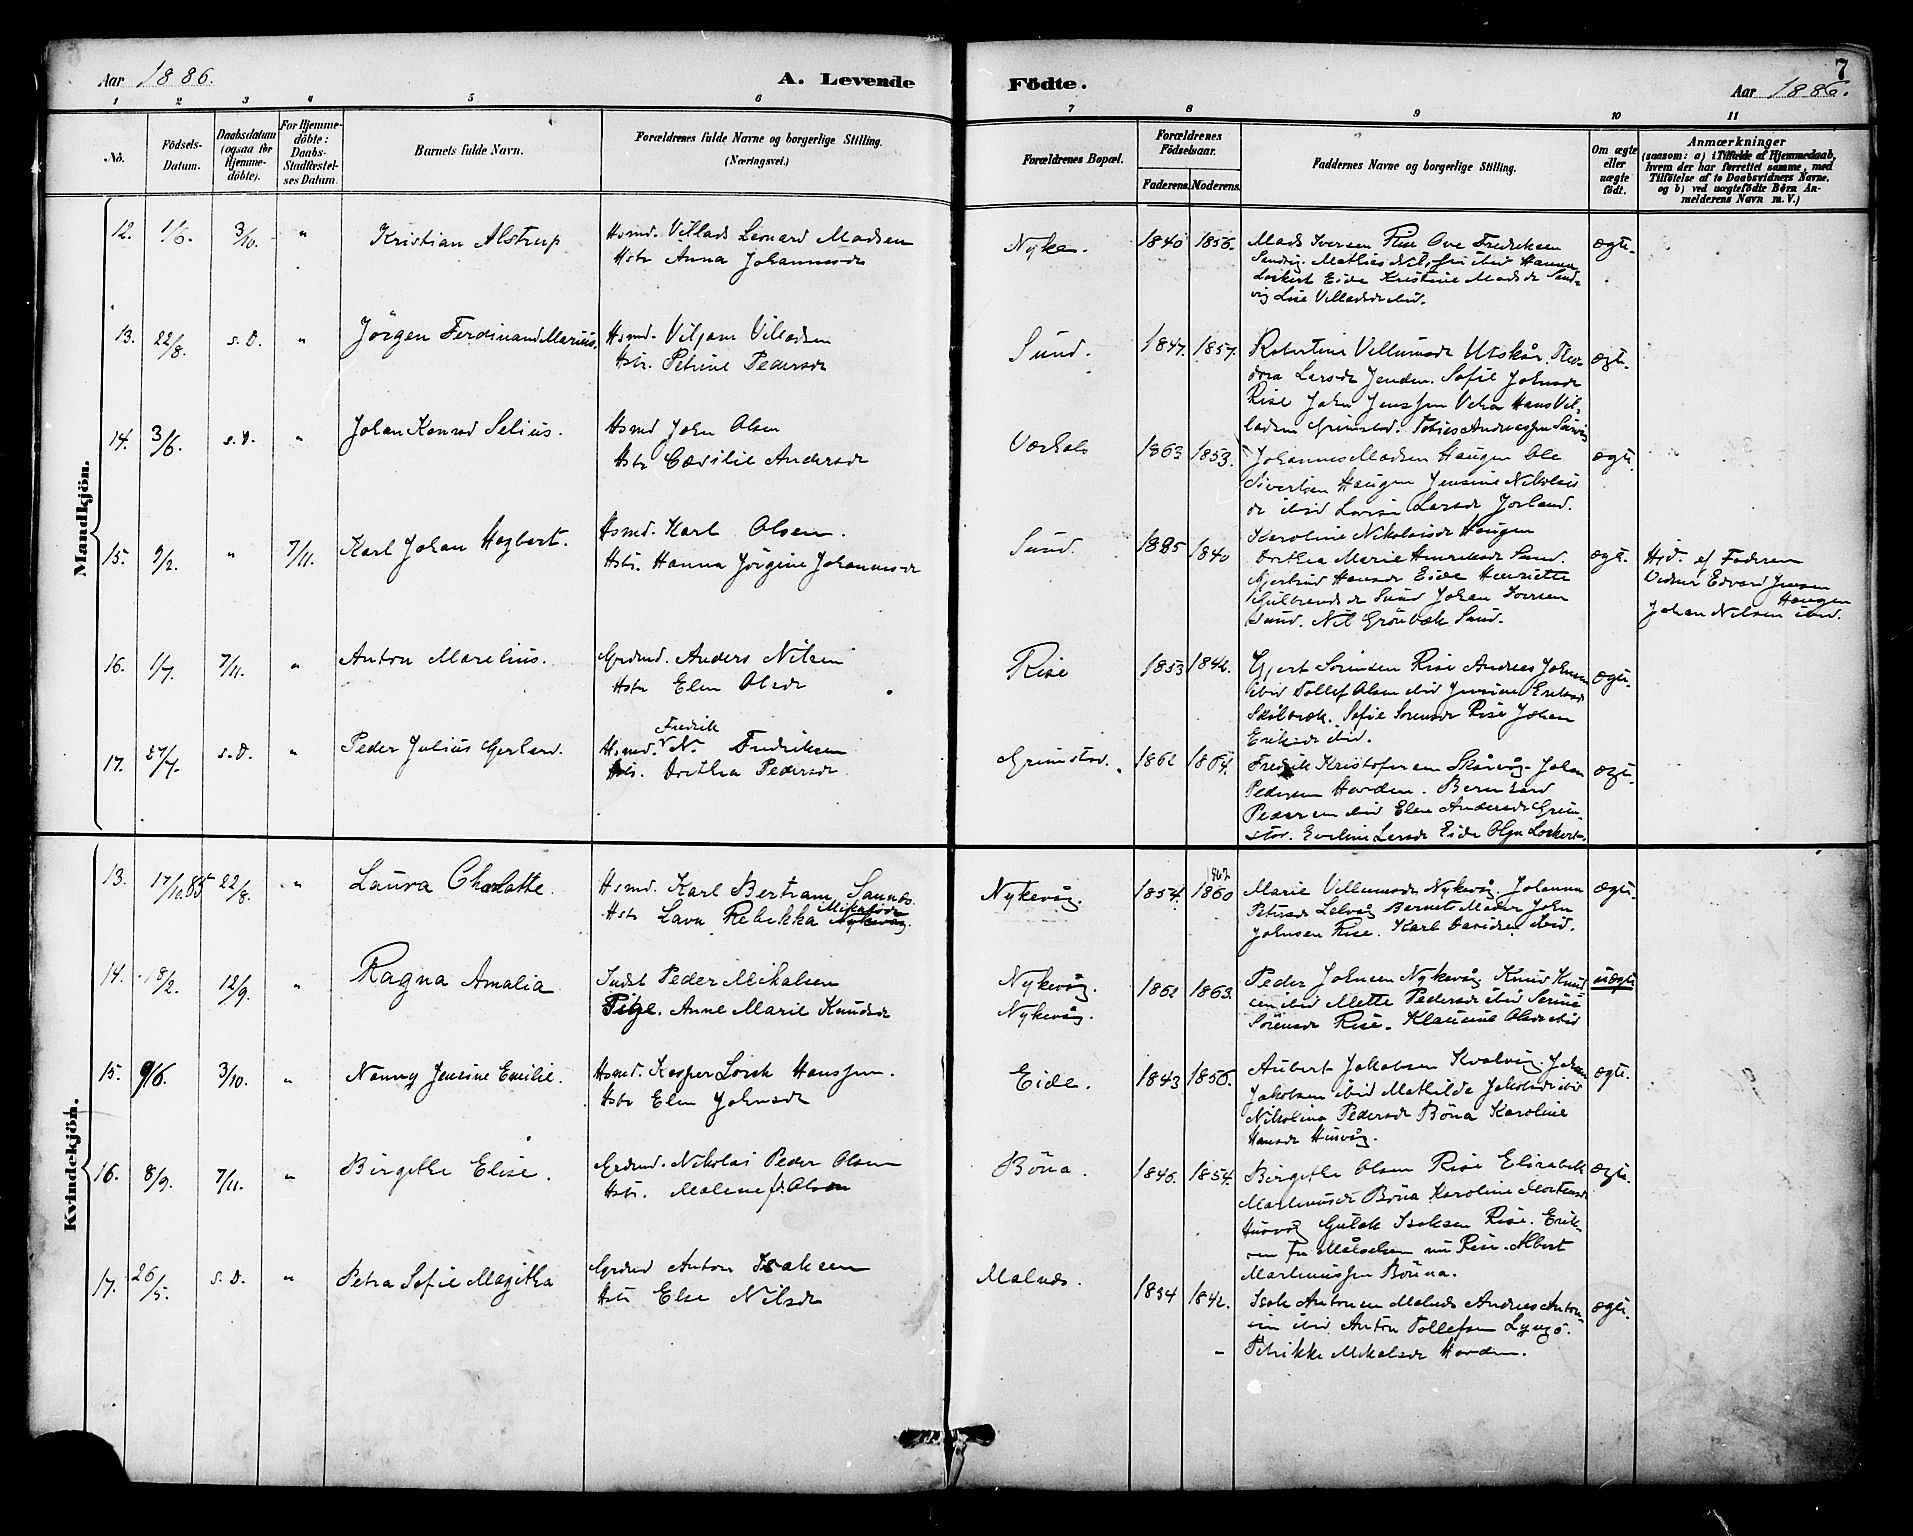 7
Aar 1886.
A. Levende
Födte.
Aar 1886.
1 2 3 4 5 6 7 8 9 10 11
No.
Födsels-
Datum.
Daabsdatum
(ogsaa for
Hjemme-
döbte).
For Hjemme-
döbte:
Daabs-
Stadfæstel-
ses Datum.
Barnets fulde Navn.
Forældrenes fulde Navne og borgerlige Stilling.
(Næringsvei.)
Forældrenes Bopæl.
Forældrenes
Födselsaar.
Faderens. Moderens.
Faddernes Navne og borgerlige Stilling.
Om ægte
eller
uægte
födt.
Anmærkninger
(saasom: a) i Tilfælde af Hjemmedaab,
hvem der har forrettet samme, med
Tilföielse af to Daabsvidners Navne.
og b) ved uægtefödte Börn An-
melderens Navn m. V.)
Mandkjön.
12. 1/6. 3/10. " Kristian Alstrup
Hsmd. Villads Leonard Madsen
Hstr Anna Johannesdr
Nyke. 1840 1856.
Mads Iversen Rise Ove Fredriksen
Hanna
Eide Kristine Madsdr Sand-
vig Lise Villadsdr ibid.
ægte.
13. 22/8. s.D. " Jörgen Ferdinand Marius.
Hsmd. Viljam Villadsen
Hstr. Petrine Pedersdr
Sund. 1847. 1857.
Robertine Villumsdr Utskår. Theo-
dora Larsdr Jenden. Sofie Johnsdr
Rise John Jenssen Hans Vil-
ladsen Grimstad. Tobias Andreassen
ægte.
14. 3/6. s.D. " Johan Konrad Selius.
Hsmd John Olsen
Hstr Cæcilie Andersdr
1863 1853.
Johannes Madsen Haugen Ole
Sivertsen Haugen Jensine Nikolais
dr ibid Lovise Larsdr Jorland.
Karoline Nikolaisdr Haugen
ægte
15. 9/2. " 7/11. Karl Johan Hagbart.
Hsmd. Karl Olsen.
Hstr. Hanna Jörgine Johannesdr
Sund. 1835 1840
Dorthea Marie Henriksdr Sund.
Hansdr Eide Henriette
Sund Johan Iversen
Sund. Nil Grönbæk Sund.
ægte.
Hjd. af Faderen
Vidner Edvard Jensen
Haugen
Johan Nilsen ibid.
16. 1/7. 7/11. " Anton Marelius.
Grdmd. Anders Nilsen
Hstr Elen Olsdr
Rise 1853 1842.
Gjert Sörensen Rise Andreas Johnsen
ibid Tollef Olsen ibid Jensine Eriksdr
Sofie Sörensdr Rise Johan
ibid.
ægte.
17. 27/7. s.D. " Peder Julius Gerhard.
Fredrik
Hsmd. N. Fredriksen
Hstr. Dorthea Pedersdr.
Grimstad. 1862 1864.
Fredrik Kristofersen Johan
Pedersen Hovden. Bernhard
Pedersen ibid Elen Andersdr Grim-
stad. Eveline Larsdr Eide Olga Lockert
ægte.
Kvindekjön.
13. 17/10.85 22/8. " Laura Charlotte.
Hsmd. Karl Bertram Sannes.
Mikalsdr
Hstr Lava Rebekka Nykevåg.
1862
Nykevåg. 1854. 1860
Marie Villumsdr Nykevåg. Johanna
Petersdr Barnets Moder John
Johnsen Rise. Karl Davidsen ibid.
ægte.
14. 18/2. 12/9. " Ragna Amalia
Indst Peder Mikalsen
Pige. Anne Marie Knudsdr
Nykevåg. 1862 1863.
Nykevåg.
Peder Johnsen Nykevåg Knud Knud
sen ibid Mette Pedersdr ibid Serine
Sörensdr Rise. Klausine Olsdr ibid
uægte
15. 9/6. 3/10. " Nanny Jensine Emilie.
Hsmd. Kasper Lorck Hanssen.
Hstr Elen Johnsdr
Eide. 1843 1850.
Aubert Jakobsen Kvalvig. Johan
Jakobsen ibid Mathilde Jakobsdr ibid
Nikoline Pedersdr Böna Karoline
Hansdr Husvåg.
ægte.
16. 8/9. 7/11. " Birgithe Elise.
Grdmd. Nikolai Peder Olsen
Hstr. Malene f. Olsen
Böna. 1846. 1854.
Birgithe Olsen Rise Elisabeth
Martinusdr Böna Karoline Mortensdr
Husvåg Gulak Isaksen Rise. Erik-
sen fra Målselven nu Rise. Albert
Martinussen Böna.
ægte.
17. 26/5. s.D. " Petra Sofie Magitha
Grdmd Anton Isaksen
Hstr Else Nilsdr
Malnes. 1834 1842.
Isak Antonsen Malnes Andreas Anton
sen ibid Anton Tollefsen Lyngö.
Petrikke Mikalsdr Hovden.
ægte.